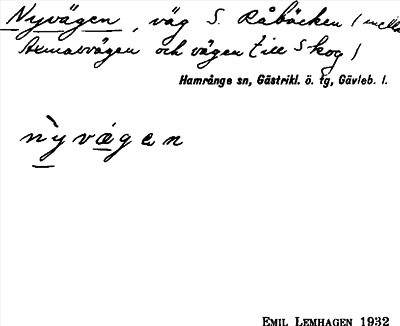 Nyvägen, väg S. Råbäcken (mella
vägen och vägen till Skog)
Hamrånge sn, Gästrikl. ö. tg, Gävleb. l.
nỳvǻgen
EMIL LEMHAGEN 1932